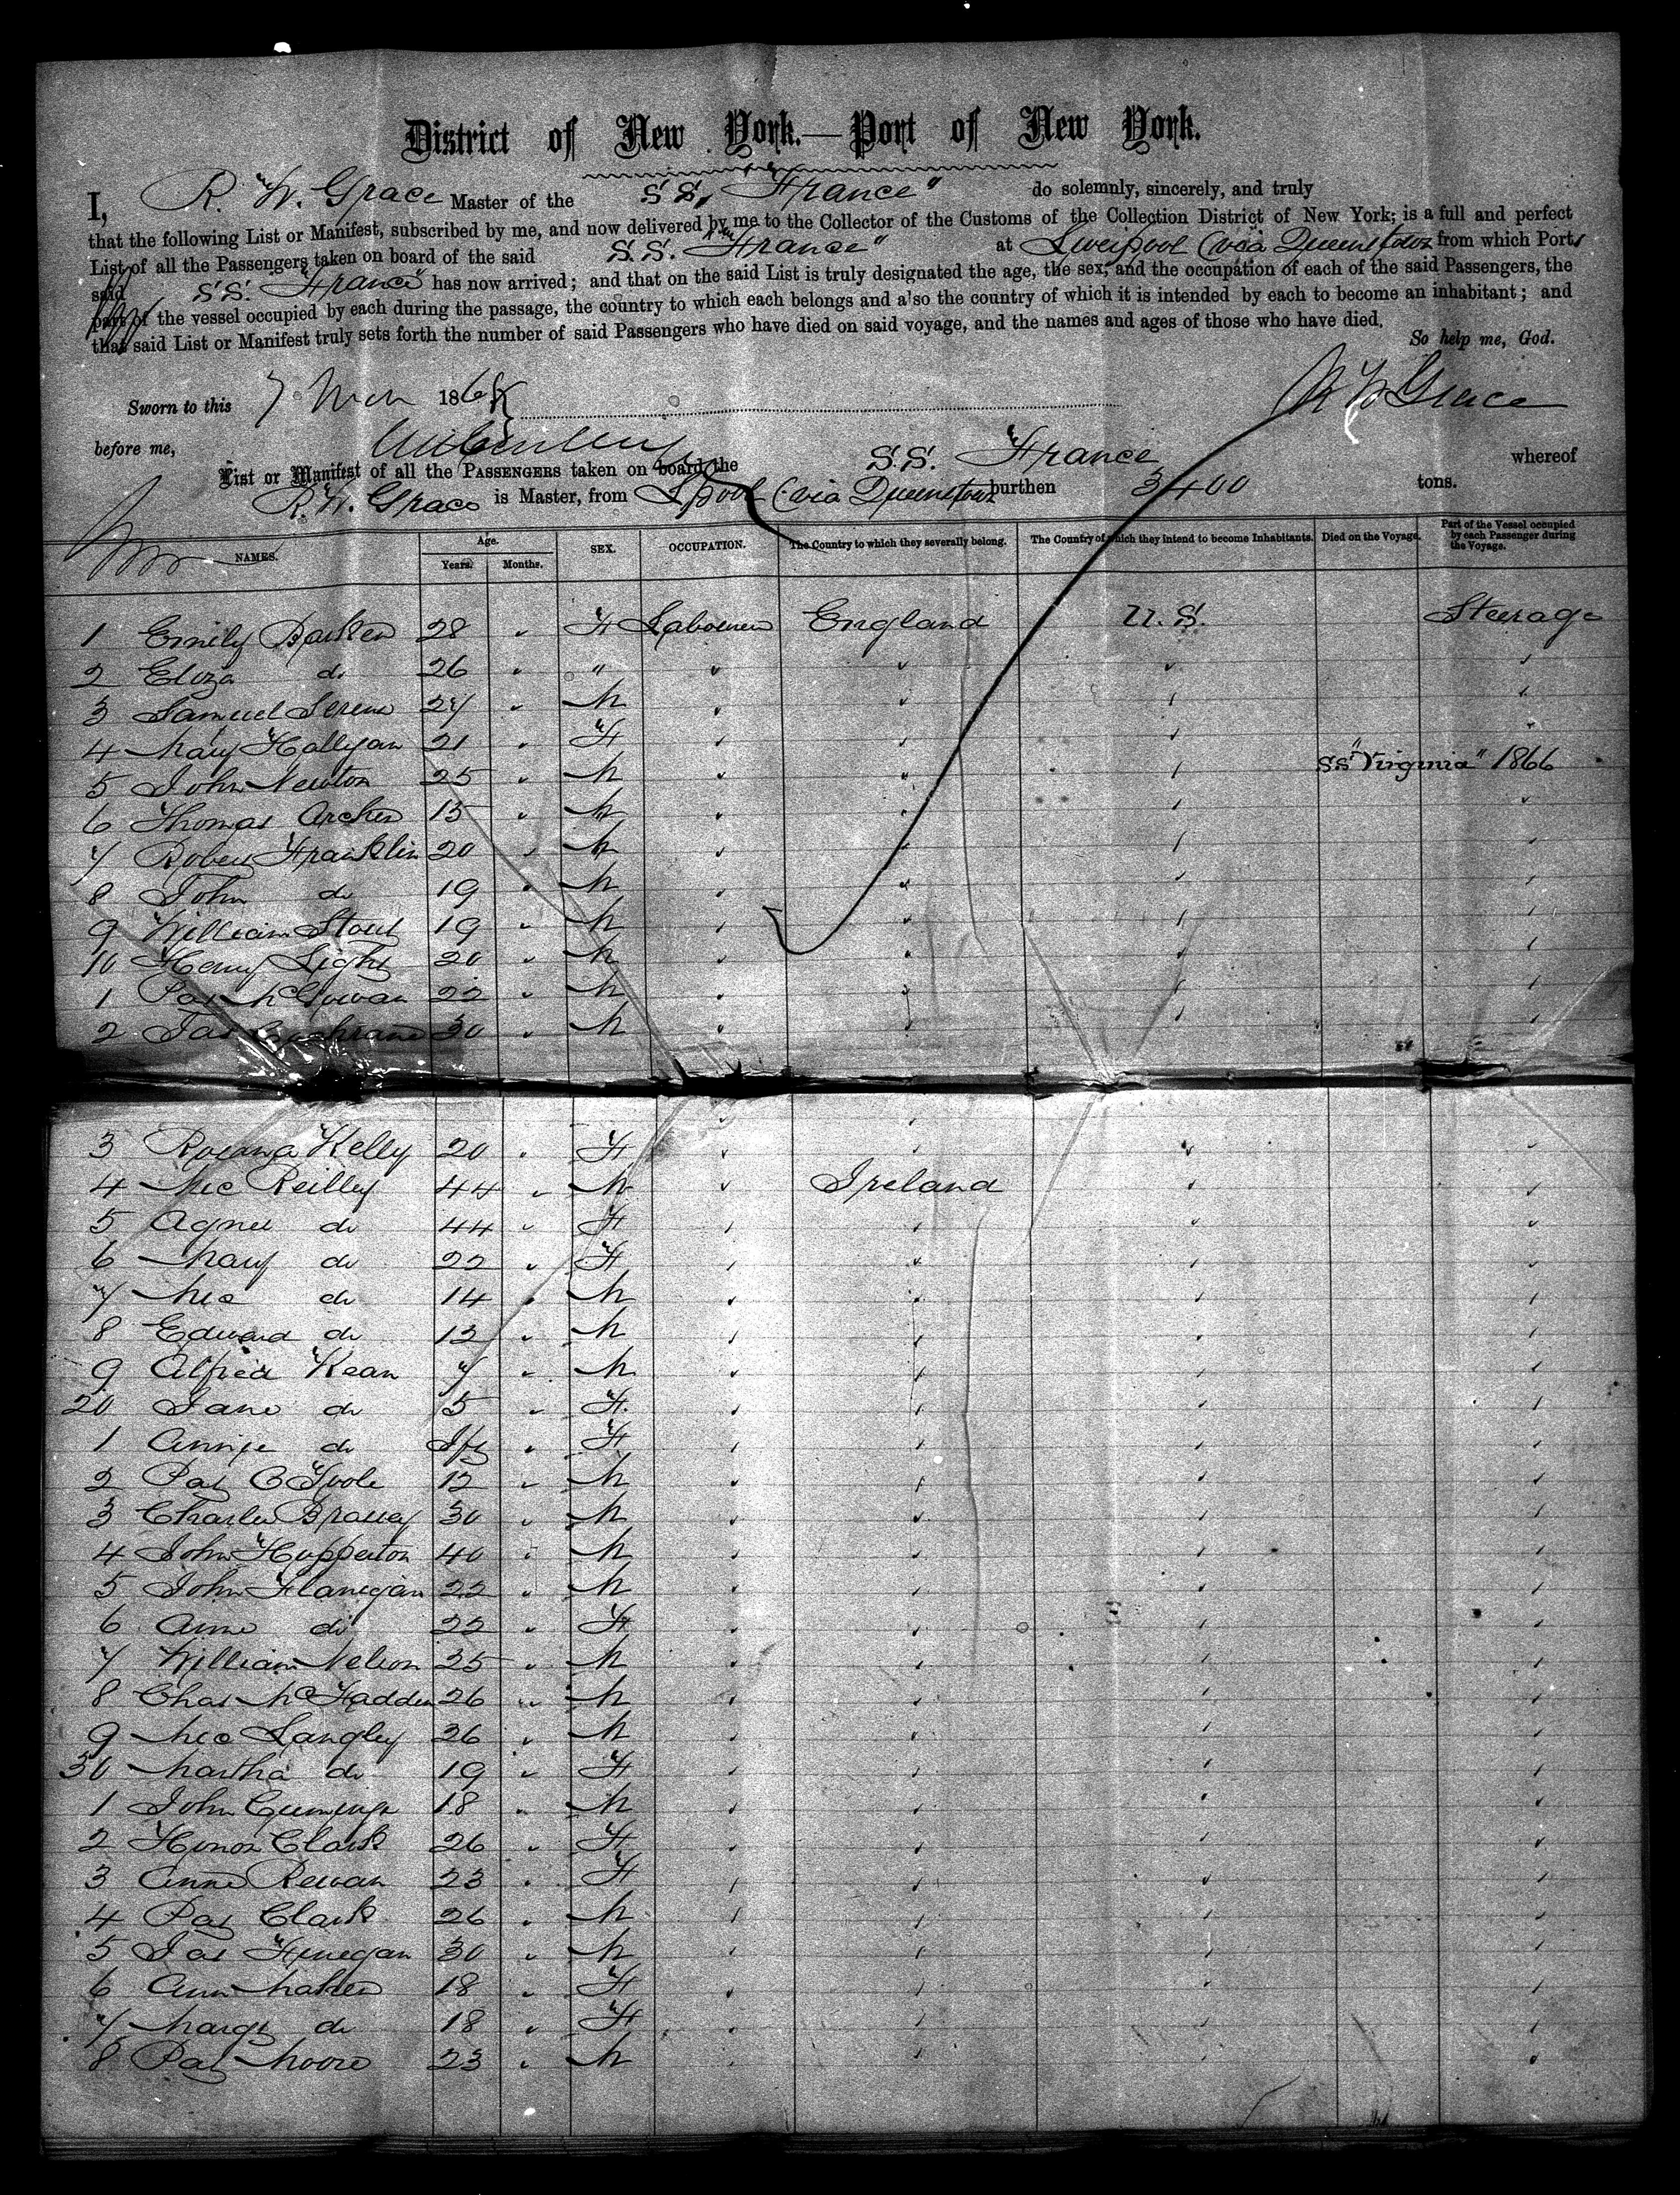 District of New York.—Port of New York.
I, R. W. Grace Master of the S.S. "France" do solemnly, sincerely, and truly
that the following List or Manifest, subscribed by me, and now delivered by me to the Collector of the Customs of the Collection District of New York; is a full and perfect
List of all the Passengers taken on board of the said S.S. "France" at Liverpool (via Queenstown from which Ports
said S.S. "France" has now arrived; and that on the said List is truly designated the age, the sex, and the occupation of each of the said Passengers, the
part of the vessel occupied by each during the passage, the country to which each belongs and also the country of which it is intended by each to become an inhabitant; and
that said List or Manifest truly sets forth the number of said Passengers who have died on said voyage, and the names and ages of those who have died.
So help me, God.
Sworn to this 7 1868 R W Grace
before me,
List or Manifest of all the PASSENGERS taken on board the S.S. "France whereof
R. W. Grace is Master, from Lpool (via Queenstown burthen 3400 tons.
NAMES. Age. Years. Months. SEX. OCCUPATION. The Country to which they severally belong. The Country of which they intend to become Inhabitants. Died on the Voyage. Part of the Vessel occupied by each Passenger during the Voyage.
1 Emily Barker 28 " F Labourers England U.S. Steerage
2 Eliza do 26 " " " " " "
3 Samuel 24 " M " " " "
4 Mary Hallyan 21 " F " " " "
5 John Newton 25 " M " " " SS "Virginia" 1866
6 Thomas Archer 15 " M " " " "
7 Robert Franklin 20 " M " " " "
8 John do 19 " M " " " "
9 William Stout 19 " M " " " "
10 Henry Light 20 " M " " " "
1 Pat McGowan 22 " M " " " "
2 Jas Cochrane 30 " M " " " "
3 Kelly 20 " F " " " "
4 Mic Reilley 44 " M " Ireland " "
5 Agnes do 44 " F " " " "
6 Mary do 22 " F " " " "
7 Mic do 14 " M " " " "
8 Edward do 12 " M " " " "
9 Alfred Kean 7 " M " " " "
20 Jane do 5 " F " " " "
1 Annie do Inf " F " " " "
2 Pat O Toole 12 " M " " " "
3 Charles 30 " M " " " "
4 John Hupperton 40 " M " " " "
5 John Flanegan 22 " M " " " "
6 Anne do 22 " F " " " "
7 William Nelson 25 " M " " " "
8 Chas McFadden 26 " M " " " "
9 Mic Langley 26 " M " " " "
30 Martha do 19 " F " " " "
1 John Cumings 18 " M " " " "
2 Honor Clark 26 " F " " " "
3 Anne 23 " F " " " "
4 Pat Clark 26 " M " " " "
5 Jas Finegan 30 " M " " " "
6 Ann Maher 18 " F " " " "
7 Margt do 18 " F " " " "
8 Pat Moore 23 " M " " " "